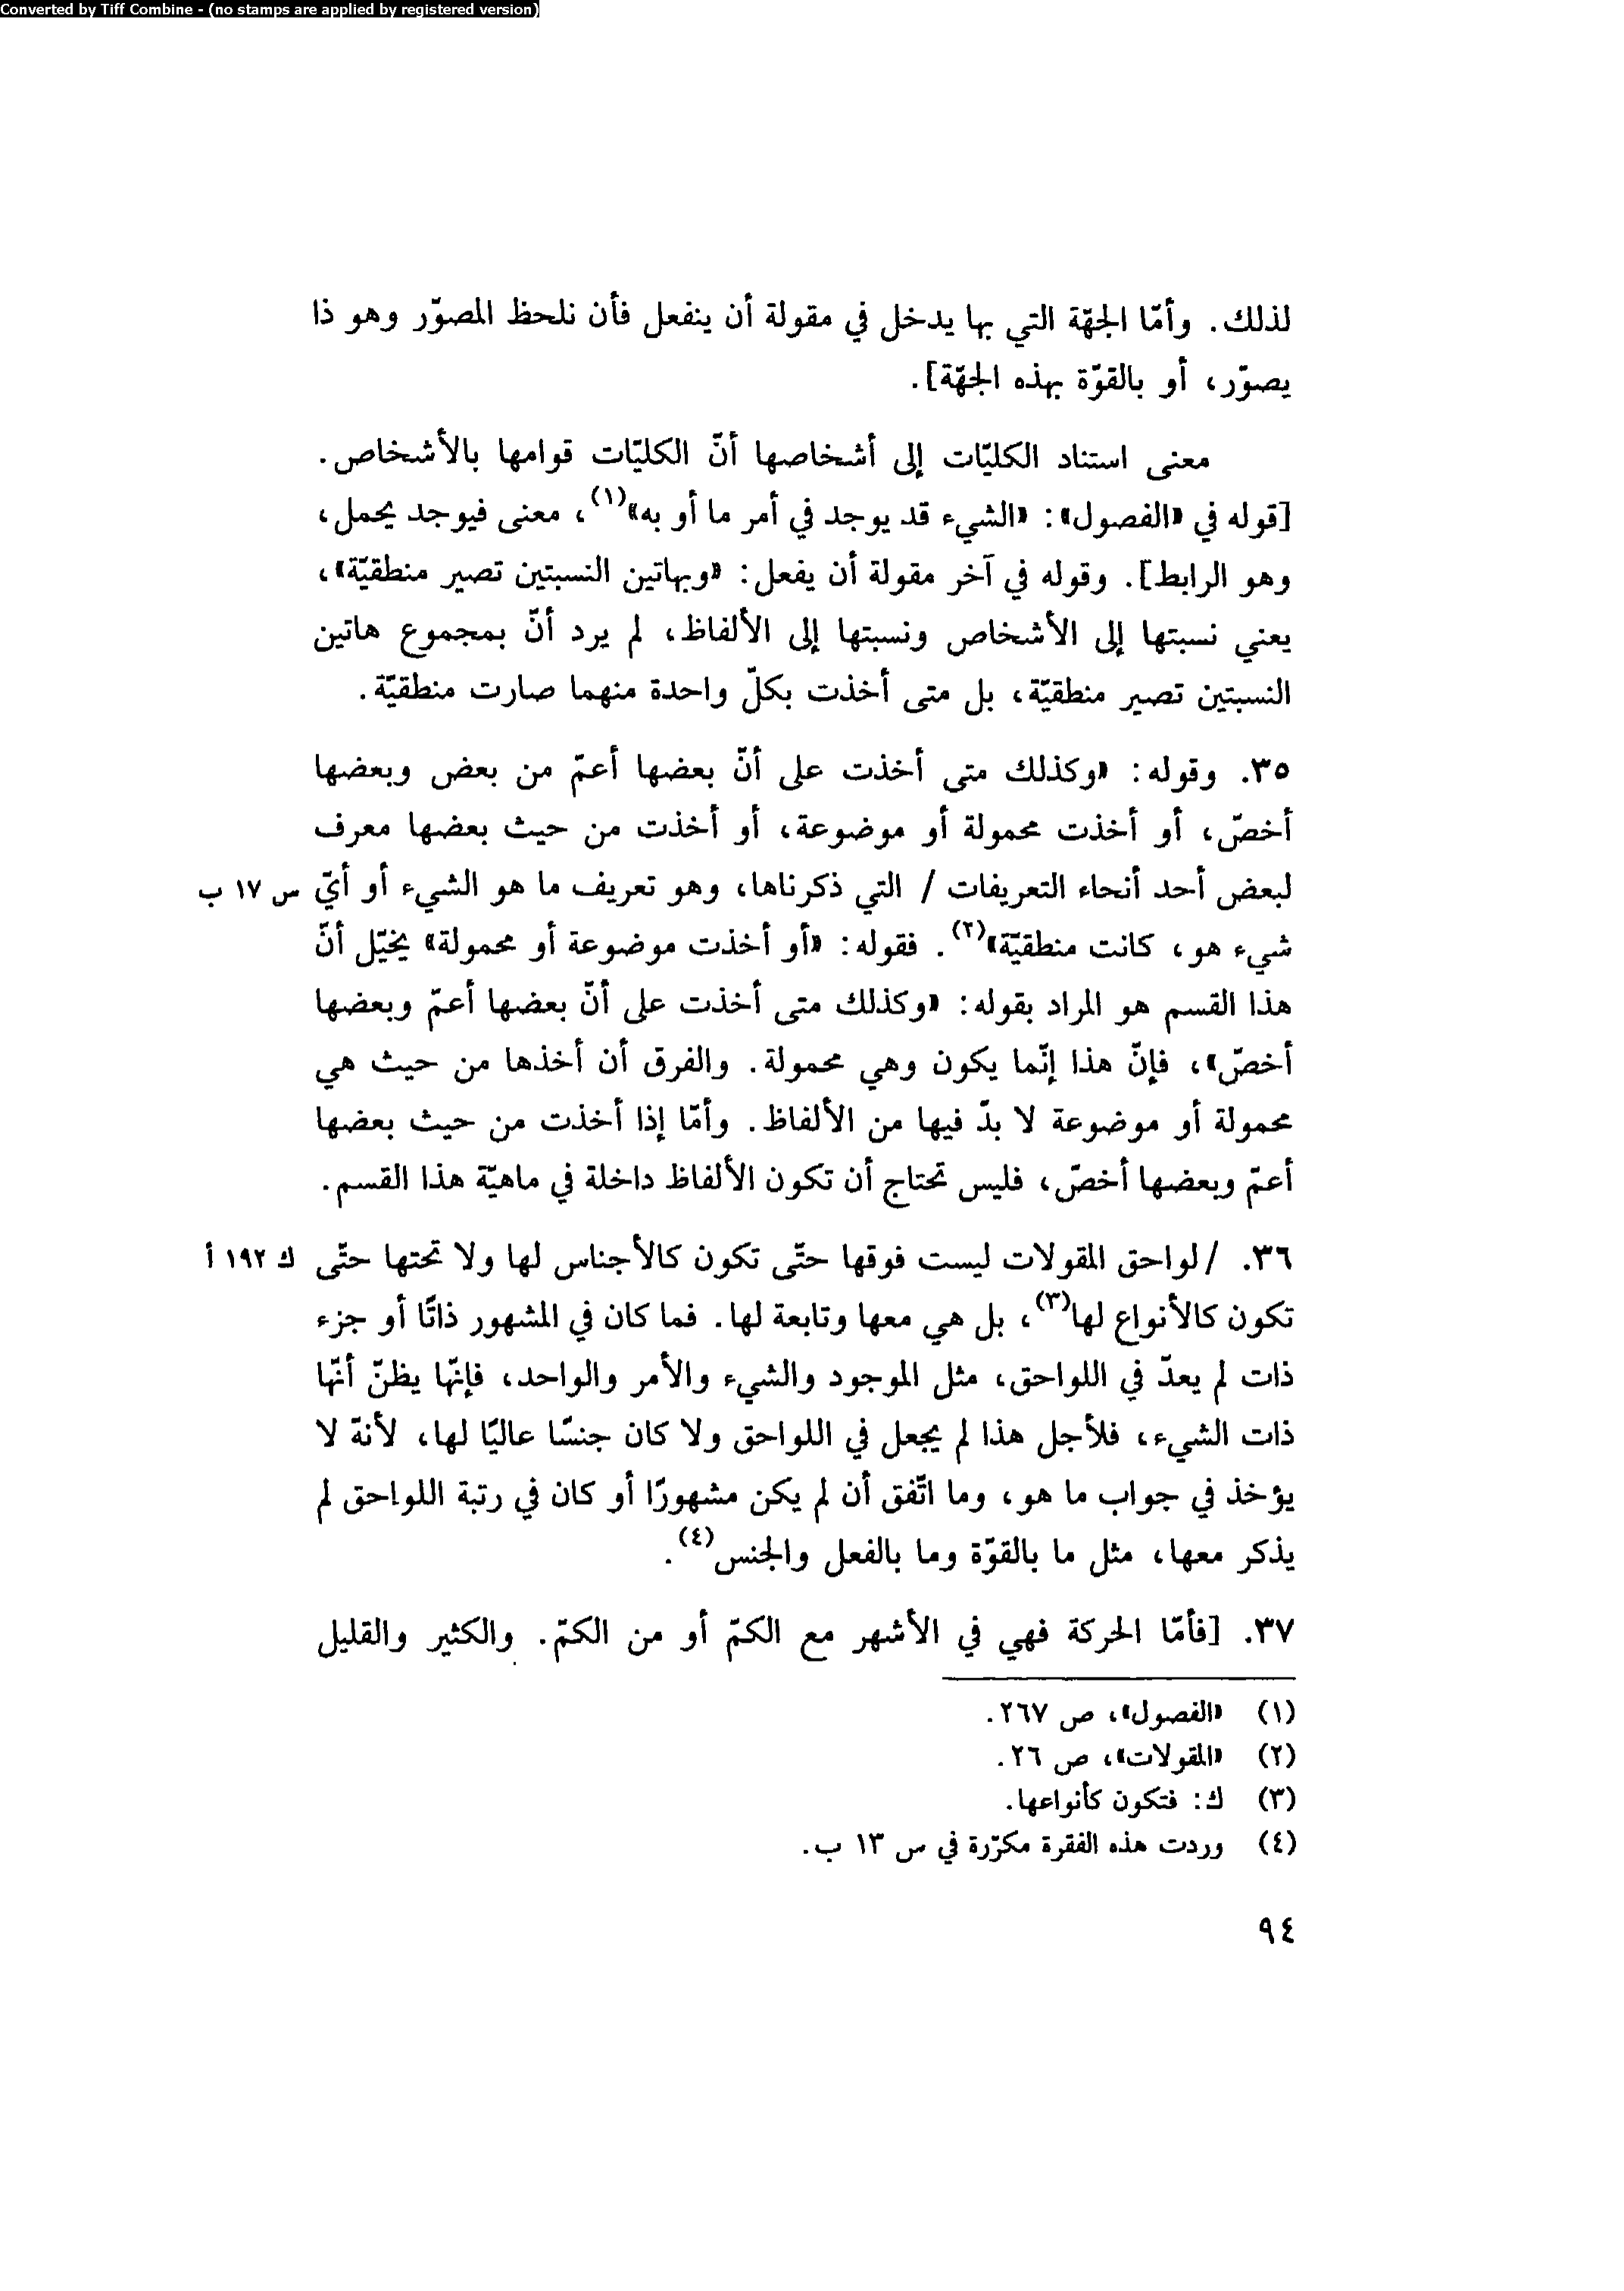 Converted by Tiff Combine - (no stamps are applied by registered version)
لذلك. وأمّا الجهّة التي بها يدخل في مقولة أن ينفعل فأن نلحظ المصوّر وهو ذا
يصوّر، أو بالقوّة بهذه الجهّة].
معنى استناد الكليّات إلى أشخاصها أنّ الكليّات قوامها بالأشخاص.
[قوله في «الفصول»: «الشيء قد يوجد في أمر ما أو به»(١)، معنى فيوجد يحمل،
وهو الرابط]. وقوله في آخر مقولة أن يفعل: «وبهاتين النسبتين تصير منطقيّة»،
يعني نسبتها إلى الأشخاص ونسبتها إلى الألفاظ، لم يرد أنّ بمجموع هاتين
النسبتين تصير منطقيّة، بل متى أخذت بكلّ واحدة منهما صارت منطقيّة.
٣٥. وقوله: «وكذلك متى أخذت على أنّ بعضها أعمّ من بعض وبعضها
أخصّ، أو أخذت محمولة أو موضوعة، أو أخذت من حيث بعضها معرف
لبعض أحد أنحاء التعريفات / التي ذكرناها، وهو تعريف ما هو الشيء أو أيّ س ١٧ ب
شيء هو، كانت منطقيّة»(٢). فقوله: «أو أخذت موضوعة أو محمولة» يخيّل أنّ
هذا القسم هو المراد بقوله: «وكذلك متى أخذت على أنّ بعضها أعمّ وبعضها
أخصّ»، فإنّ هذا إنّما يكون وهي محمولة. والفرق أن أخذها من حيث هي
محمولة أو موضوعة لا بدّ فيها من الألفاظ. وأمّا إذا أخذت من حيث بعضها
أعمّ وبعضها أخصّ، فليس تحتاج أن تكون الألفاظ داخلة في ماهيّة هذا القسم.
٣٦. /لواحق المقولات ليست فوقها حتّى تكون كالأجناس لها ولا تحتها حتّى ك ١٩٢ أ
تكون كالأنواع لها(٣)، بل هي معها وتابعة لها. فما كان في المشهور ذاتًا أو جزء
ذات لم يعدّ في اللواحق، مثل الموجود والشيء والأمر والواحد، فإنّها يظنّ أنّها
ذات الشيء، فلأجل هذا لم يجعل في اللواحق ولا كان جنسًا عاليًا لها، لأنهّ لا
يؤخذ في جواب ما هو، وما اتّفق أن لم يكن مشهورًا أو كان في رتبة اللواحق لم
يذكر معها، مثل ما بالقوّة وما بالفعل والجنس(٤).
٣٧. [فأمّا الحركة فهي في الأشهر مع الكمّ أو من الكمّ. والكثير والقليل
(١) «الفصول»، ص ٢٦٧.
(٢) «المقولات»، ص ٢٦.
(٣) ك: فتكون كأنواعها.
(٤) وردت هذه الفقرة مكرّرة في س ١٣ ب.
٩٤